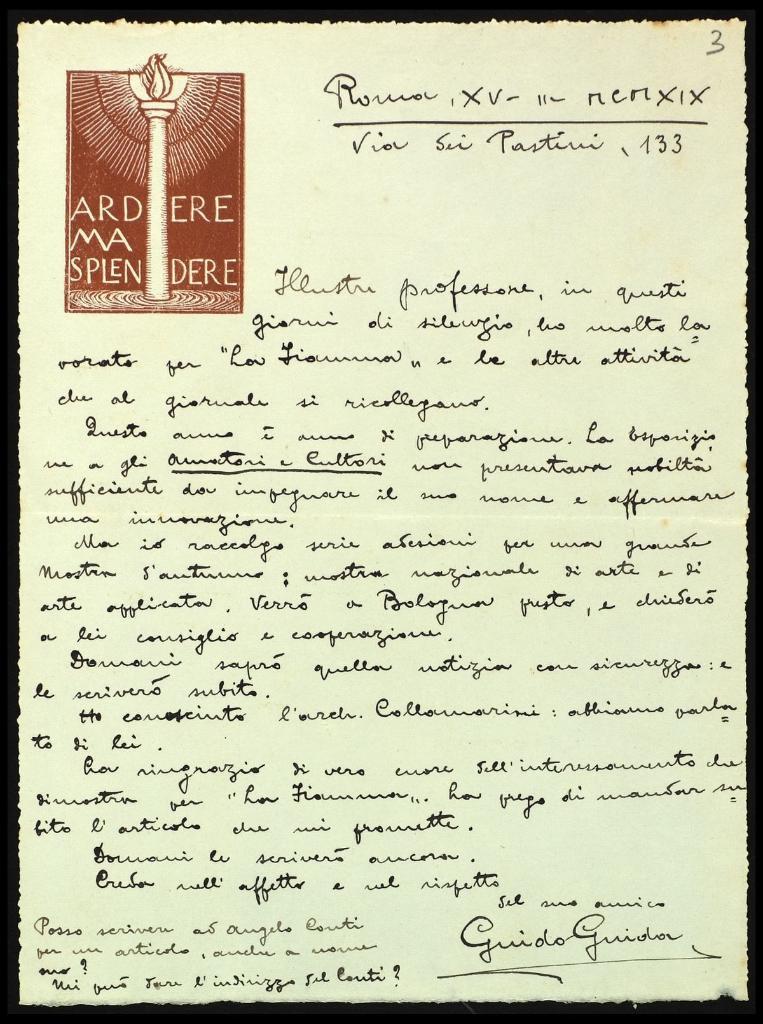 3
Roma, XV - II - MCMXIX
Via dei Pastini, 133
ARDERE
MA
SPLENDERE
Illustre professore, in questi
giorni di silenzio, ho molto la=
vorato per "La Fiamma„ e le altre attività
che al giornale si ricollegano.
Questo anno è anno di preparazione. La Esposizio
ne a gli Amatori e Cultori non presentava nobiltà
sufficiente da impegnare il suo nome e affermare
una innovazione.
Ma io raccolgo serie adesioni per una grande
Mostra d'autunno; mostra nazionale di arte e di
arte applicata. Verrò a Bologna presto, e chiederò
a lei consiglio e cooperazione.
Domani saprò quella notizia con sicurezza: e
le scriverò subito.
Ho conosciuto l'arch. Collamarini: abbiamo parla=
to di lei.
La ringrazio di vero cuore dell'interessamento che
dimostra per "La Fiamma„. La prego di mandar su=
bito l'articolo che mi promette.
Domani le scriverò ancora.
Creda nell'affetto e nel rispetto
del suo amico
Guido Guida
Posso scrivere ad Angelo Conti
per un articolo, anche a nome
suo?
Mi può dare l'indirizzo del Conti?